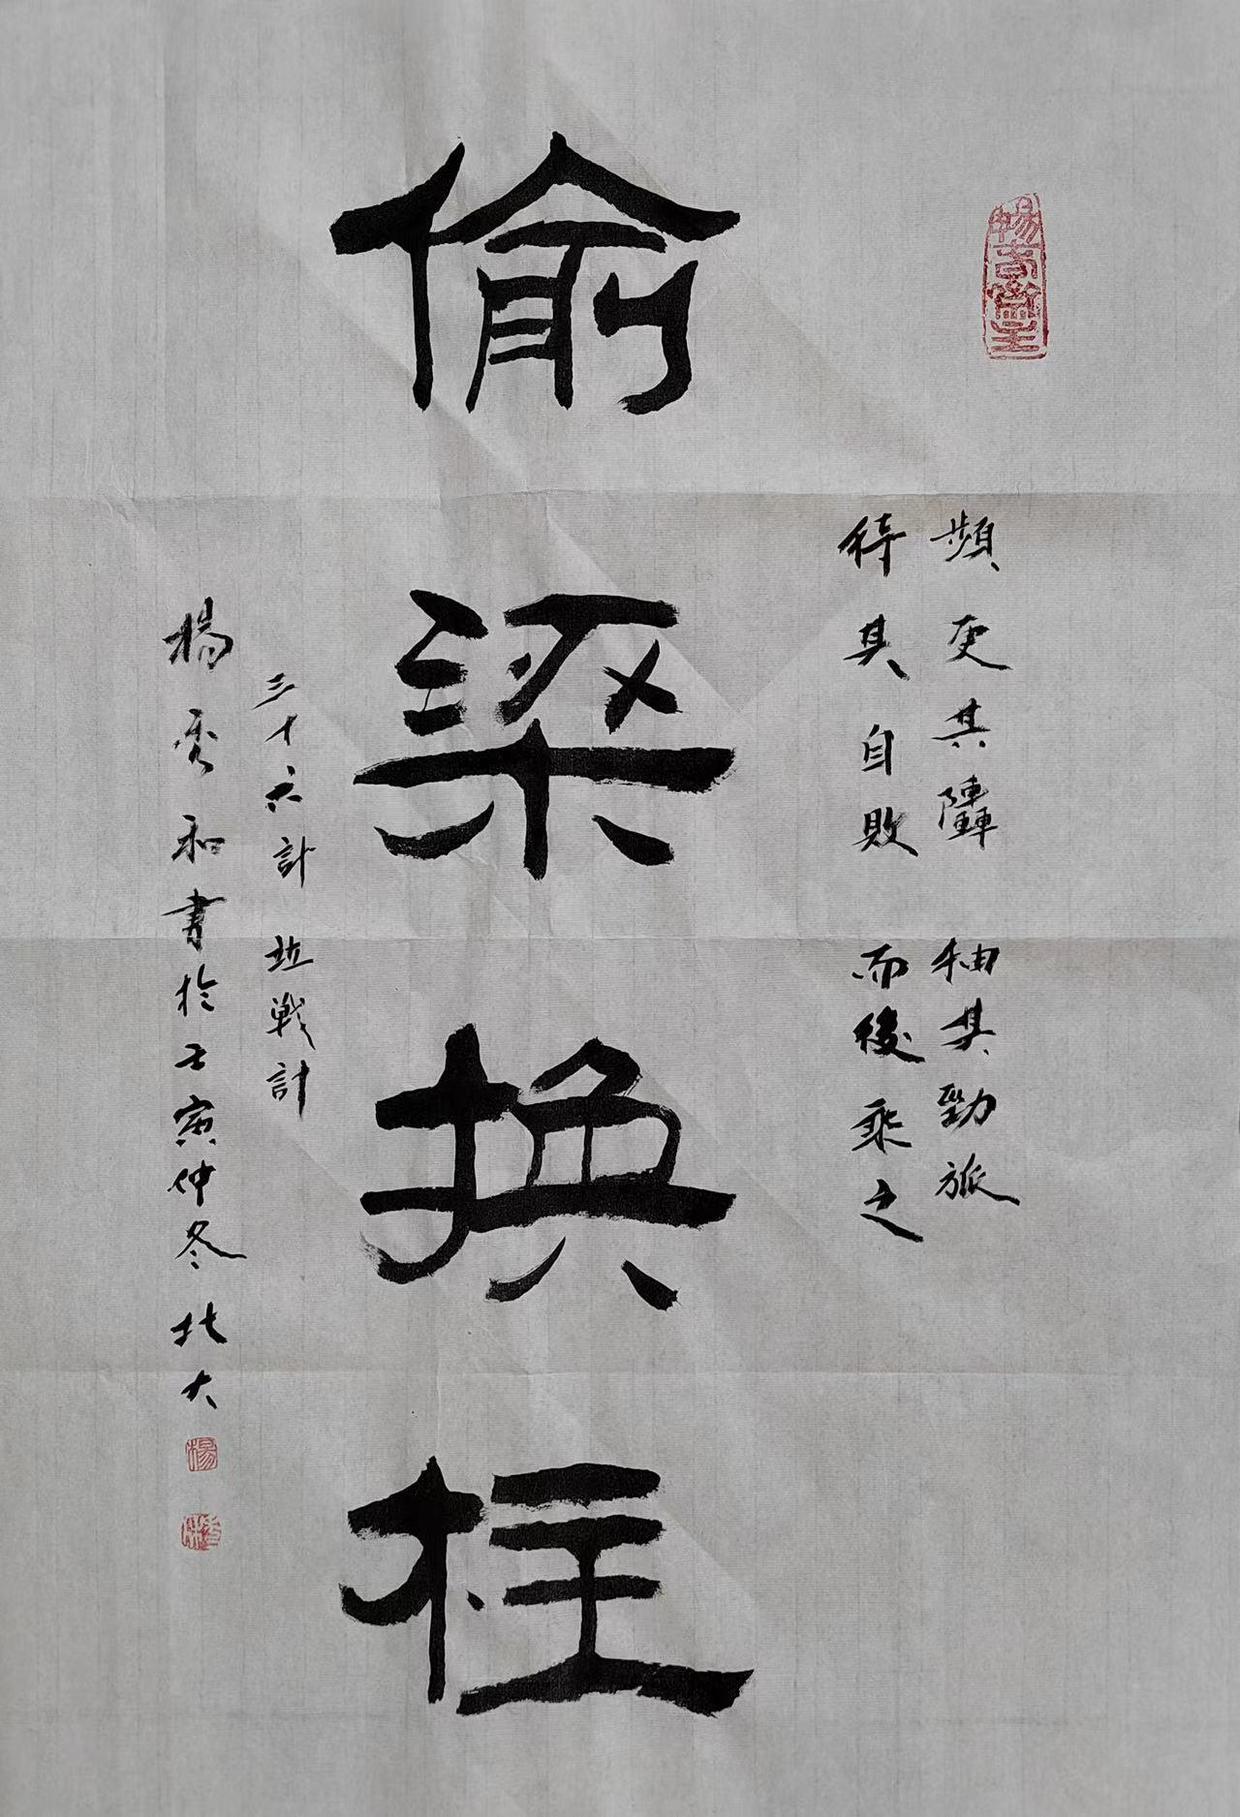 頻更其陣 抽其勁旅
待其自敗 而後乘之
偷梁換柱
三十六計 並戰計
楊秀和書於壬寅仲冬 北大
楊